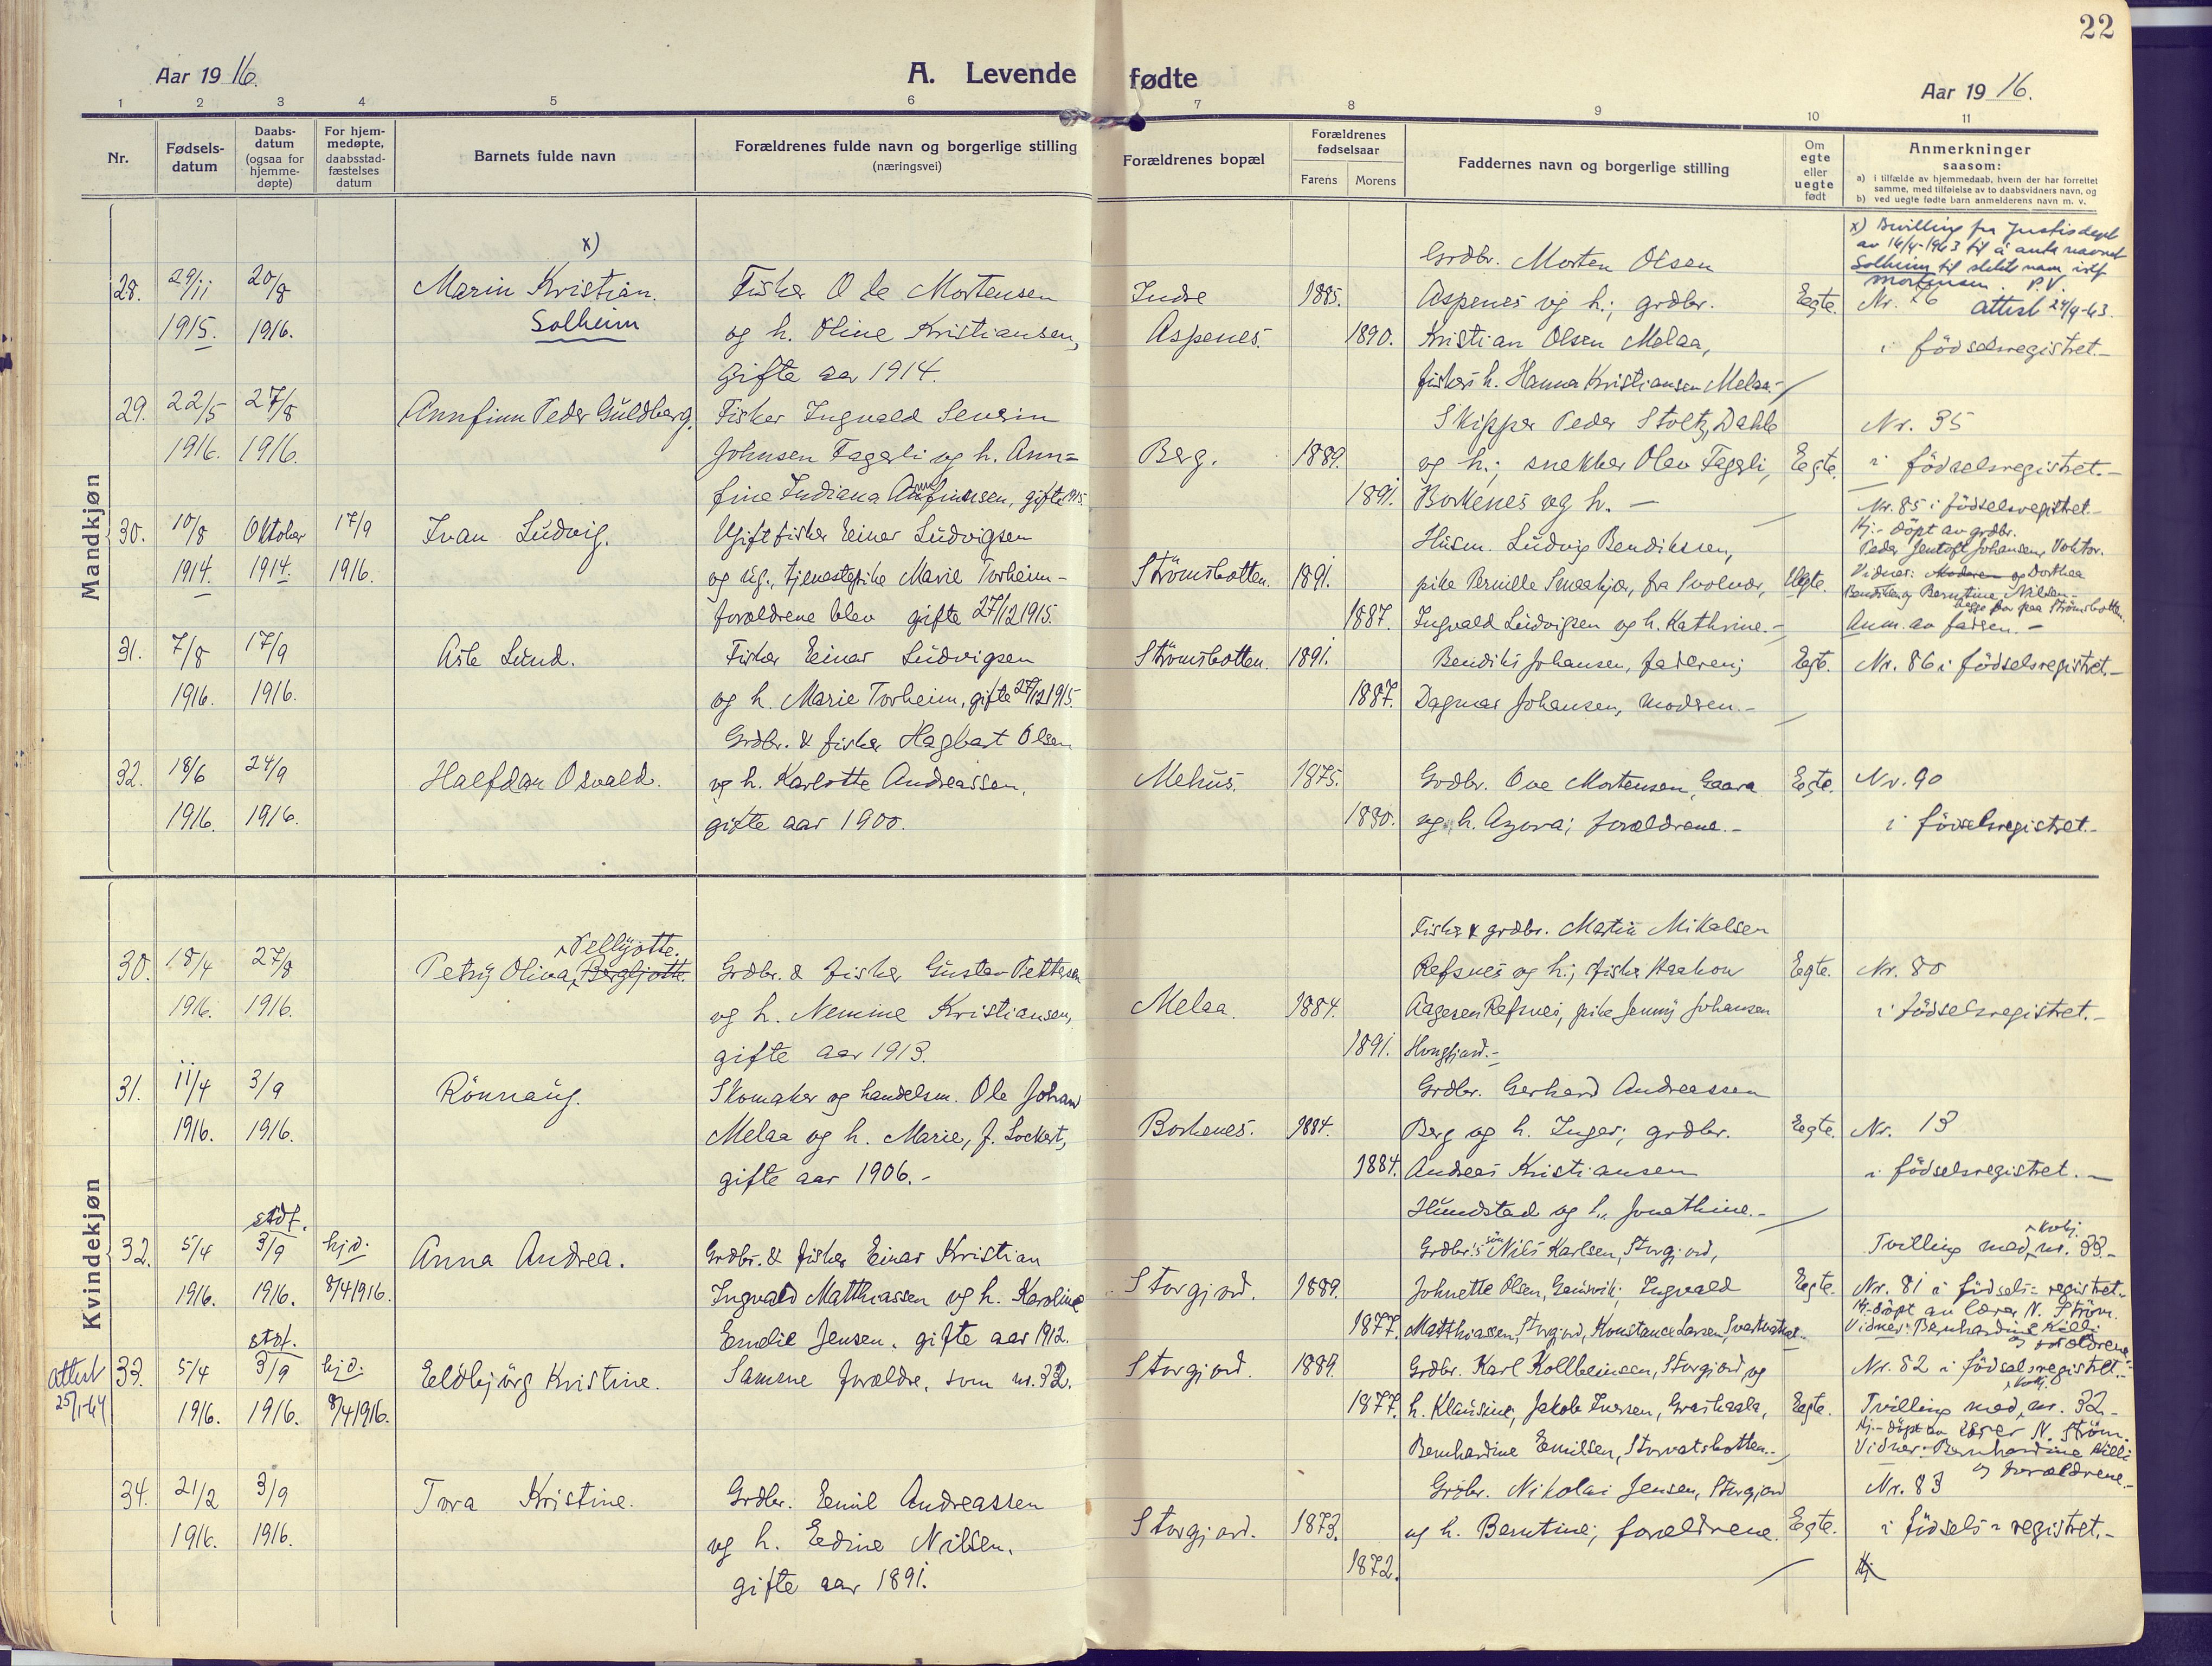 22
Aar 1916.
A. Levende fødte
Aar 1916.
1 2 3 4 5 6 7 8 9 10 11
Nr.
Fødsels-
datum
Daabs-
datum
(ogsaa for
hjemme-
døpte)
For hjem-
medøpte,
daabsstad-
fæstelses
datum
Barnets fulde navn
Forældrenes fulde navn og borgerlige stilling
(næringsvei)
Forældrenes bopæl
Forældrenes
fødselsaar
Farens
Morens
Faddernes navn og borgerlige stilling
Om
egte
eller
uegte
født
Anmerkninger
saasom:
a) i tilfælde av hjemmedaab, hvem der har forrettet
samme, med tilføielse av to daabsvidners navn, og
b) ved uegte fødte barn anmelderens navn m. v.
Mandkjøn
28.
29/11
1915.
20/8
1916.
x)
Marin Kristian.
Solheim
Fisker Ole Mortensen
og h. Oline Kristiansen,
gifte aar 1914.
Indre
Aspenes.
1885.
1890.
Grdbr. Morten Olsen
Aspenes og h.; grdbr.
Kristian Olsen Melaa,
fiskers h. Hanna Kristiansen Melaa.-
Egte.
x) Bevilling fra Justisdept
av 16/4-1963 til å anta navnet
Solheim til slektsnavn istf
Mortensen. P.V.
Nr. 76 Attest 24/9-63.
i födselsregistret.-
29.
22/5
1916.
27/8
1916.
Annfinn Peder Guldberg.
Fisker Ingvald Severin
Johnsen Fagerli og h. Ann=
fine Indiana Annfinnsen, gifte 1915.
Berg.
1889.
1891.
Skipper Peder Stoltz Dahle
og h.; snekker Olav Fagerli,
Borkenes og h. -
Egte.
Nr. 35
i födselsregistret.-
30.
10/8
1914.
Oktober
1914.
17/9
1916.
Ivan Ludvig.
Ugift fisker Einar Ludvigsen
og ug., tjenestepike Marie Torheim-
forældrene blev gifte 27/12 1915.
Strömsbotten.
1891.
1887.
Husm. Ludvig Bendiksen,
pike Pernille Smeekjær, fra Svolvær,
Ingvald Ludvigsen og h. Kathrine.-
Uegte.
Nr. 85 i födselsregistret.-
Hj.-döpt av grdbr.
Peder Jentoft Johansen, Voktor.
Vidner: Moderen og Dorthea
Bendiksen og Berntine Nilsen-
begge bor paa Strömsbotten.
Anm. av faderen.-
31.
7/8
1916.
17/9
1916.
Asle Lund.
Fisker Einar Ludvigsen
og h. Marie Torheim, gifte 27/12 1915.
Strömsbotten.
1891.
1887.
Bendiks Johansen, faderen;
Dagmar Johansen, modren.-
Egte.
Nr. 86 i födselsregistret.-
32.
18/6
1916.
24/9
1916.
Halfdan Osvald.
Grdbr. & fisker Hagbart Olsen
og h. Karlotte Andreassen,
gifte aar 1900.
Mehus.
1875.
1880.
Grdbr. Ove Mortensen, Gaara
og h. Azora; forældrene.-
Egte.
Nr. 90
i födselsregistret.-
Kvindekjøn
30.
18/4
1916.
27/8
1916.
Pellyotte.
Petry Oliva, Bergljotte.
Grdbr. & fisker Gustav Pettersen
og h. Nemine Kristiansen,
gifte aar 1913.
Melaa.
1884.
1891.
Fisker & grdbr. Martin Mikalsen
Refsnes og h.; fisker Haakon
Aagesen Refsnes, pike Jenny Johansen
Egte.
Nr. 80
i födselsregistret.-
31.
11/4
1916.
3/9
1916.
Rönnaug.
Skomaker og handelsm. Ole Johan
Melaa og h. Marie, f. Lockert,
gifte aar 1906.-
Borkenes.
1884.
1884.
Grdbr. Gerhard Andreassen
Berg og h. Inger; grdbr.
Andreas Kristiansen
Hundstad og h. Jonathine.-
Egte.
Nr. 13
i födselsregistret.-
32.
5/4
1916.
stdf.
3/9
1916.
hjd.
8/4 1916.
Anna Andrea.
Grdbr. & fisker Einar Kristian
Ingvald Matthiassen og h. Karoline
Emelie Jensen, gifte aar 1912.
Storgjord.
1889.
1877.
Grdbr.s sön Nils Karlsen, Storgjord,
Johnette Olsen, Gausvik; Ingvald
Matthiassen, Storgjord, Konstance Larsen,
Egte.
Tvilling med kvkj. nr. 33.-
Nr. 81 i födsels=registret.-
Hj-döpt av lærer N. Ström.
Vidner: Bernhardine Killi
og forældrene.-
Attest
25/1-64
33.
5/4
1916.
stdf.
3/9
1916.
hjd.
8/4 1916.
Eldbjörg Kristine.
Samme forældre, som nr. 32.
Storgjord.
1889.
1877.
Grdbr. Karl Kolbeinsen, Storgjord og
h. Klausine, Jakob Iversen,
Bernhardine Emilsen, Storvatsbotten.-
Egte.
Nr. 82 i födselsregistret.-
Tvilling med kvkj. nr. 32.-
Hj.-döpt av lærer N. Ström.
Vidner: Bernhardine Killi
og forældrene.-
34.
21/2
1916.
3/9
1916.
Tora Kristine.
Grdbr. Emil Andreassen
og h. Edine Nilsen,
gifte aar 1891.
Storgjord.
1873.
1872.
Grdbr. Nikolai Jensen, Storgjord
og h. Berntine; forældrene.
Egte.
Nr. 83
i födsels=registret.-
Hj